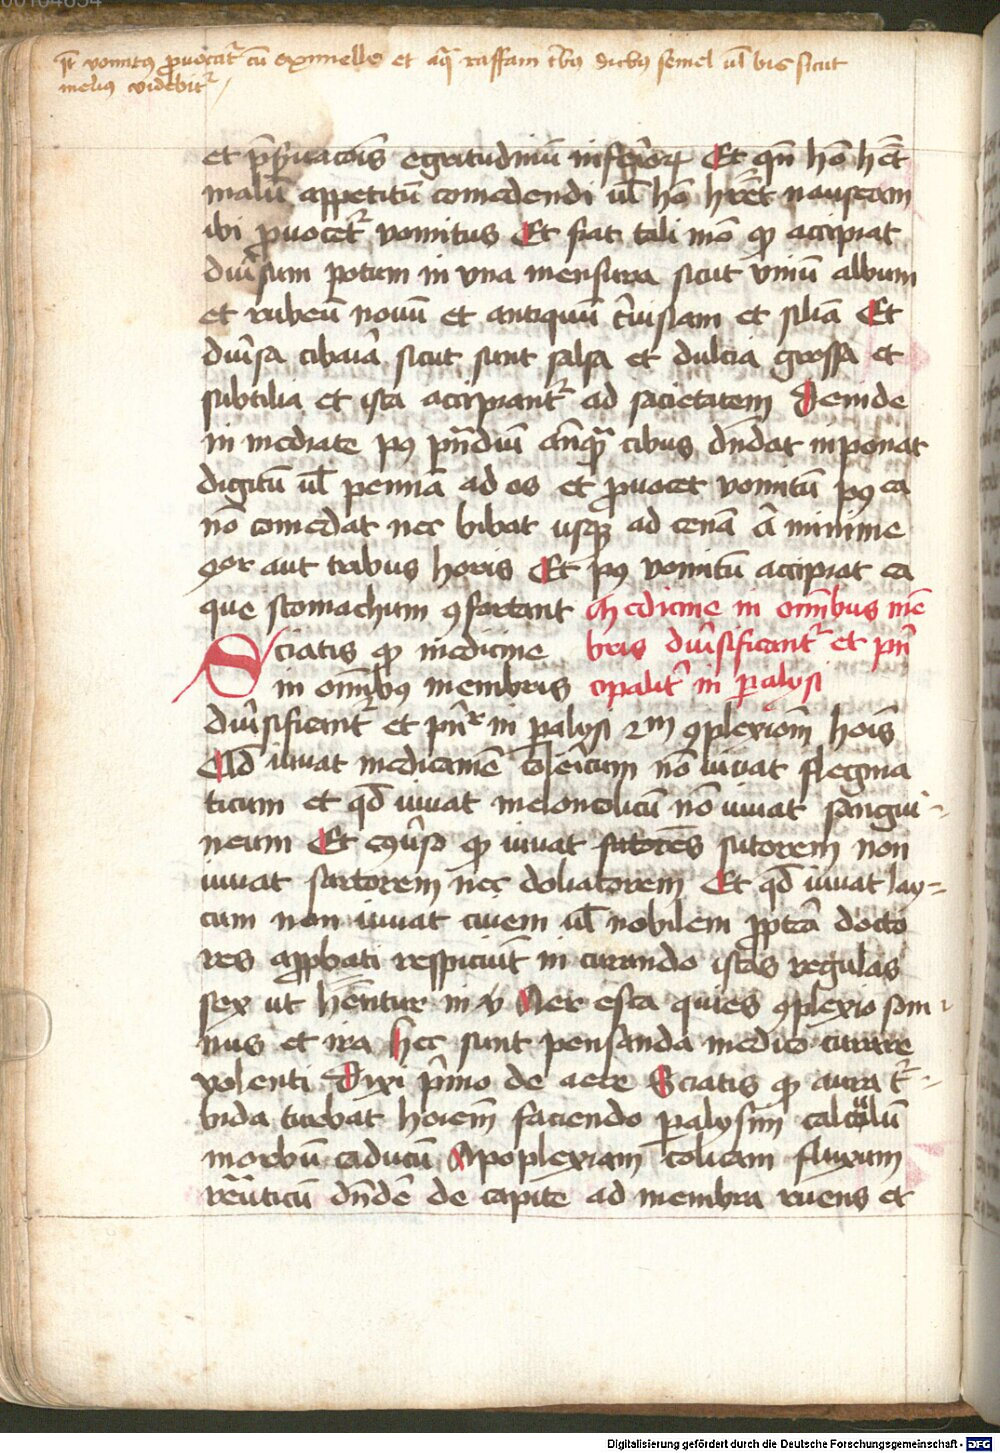 Itē vomitꝰ ꝓvocat᷑ cū oximelle et aq̄ raffani tribꝰ diebꝰ semel ul̄ bis sicut
meliꝰ videbit᷑
et p̄ẜuacōis egritudinū inferioꝝ Et qn̄ hō hēt
malū appetitū comedendi ul̄ hō hēt nauseam
ibi ꝓuocet᷑ vomitus Et fiat tali mō ꝙ accipiat
diūsum potum in vna mensura sicut vinū album
et rubeū nouū et antiquū c̄uisiam et silia Et
diūsa cibaria sicut sunt salsa et dulcia grossa et
subtilia et ista accipiant᷑ ad sacietatem Deinde
in mediate pꝰ prādiū anq̄ᷓ cibus dn̄dat inponat
digitū ul̄ pennā ad os et ꝓuocet vomitū pꝰ ea
nō comedat nec bibat usqꝫ ad cenā ā minime
ꝗor aut tribus horis Et pꝰ vomitū accipiat ea
que stomachum ꝯfortant Medicine in om̄ibus mē
Sciatis ꝙ medicine bris diūsificant᷑ et p̄n
in om̄ibꝰ membris cipalit᷑ in ꝑalysi
diūsificant᷑ et p̄n᷑ in ꝑalysi 2m ꝯplexionē hoīs
Qd̄ iuuat medicamē colericum nō iuuat flegma
ticum et qd̄ iuuat meloncolicū nō iuuat sangui-
neum Et ecōūso ꝙ iuuat sutores sutorem non
iuuat sartorem nec doliatorem Et qd̄ iuuat lay=
cum non iuuat ciuem ul̄ nobilem ꝓpterā docto
res aꝓbati respiciūt in curando istas regulas
sex ut hēntur in v Aer esca quies ꝯplexio som-
nus et ira Hec sunt pensanda medico curare
volenti Dixi p̄mo de aere Sciatis ꝙ aura t᷑-
bida turbat hoīem faciendo ꝑalysim calculū
morbū caducū Apoplexiam colicam fluxum
reūaticū dn̄dē de capite ad membra ruens et
Digitalisierung gefördert durch die Deutsche Forschungsgemeinschaft - DFG